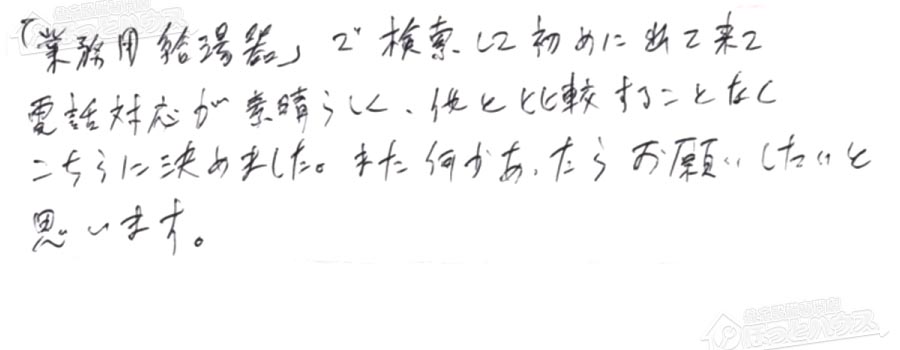 「業務用給湯器」で検索して初めに出て来て
電話対応が素晴らしく、他と比較することなく
こちらに決めました。また何かあったらお願いしたいと
思います。
ほっとハウス